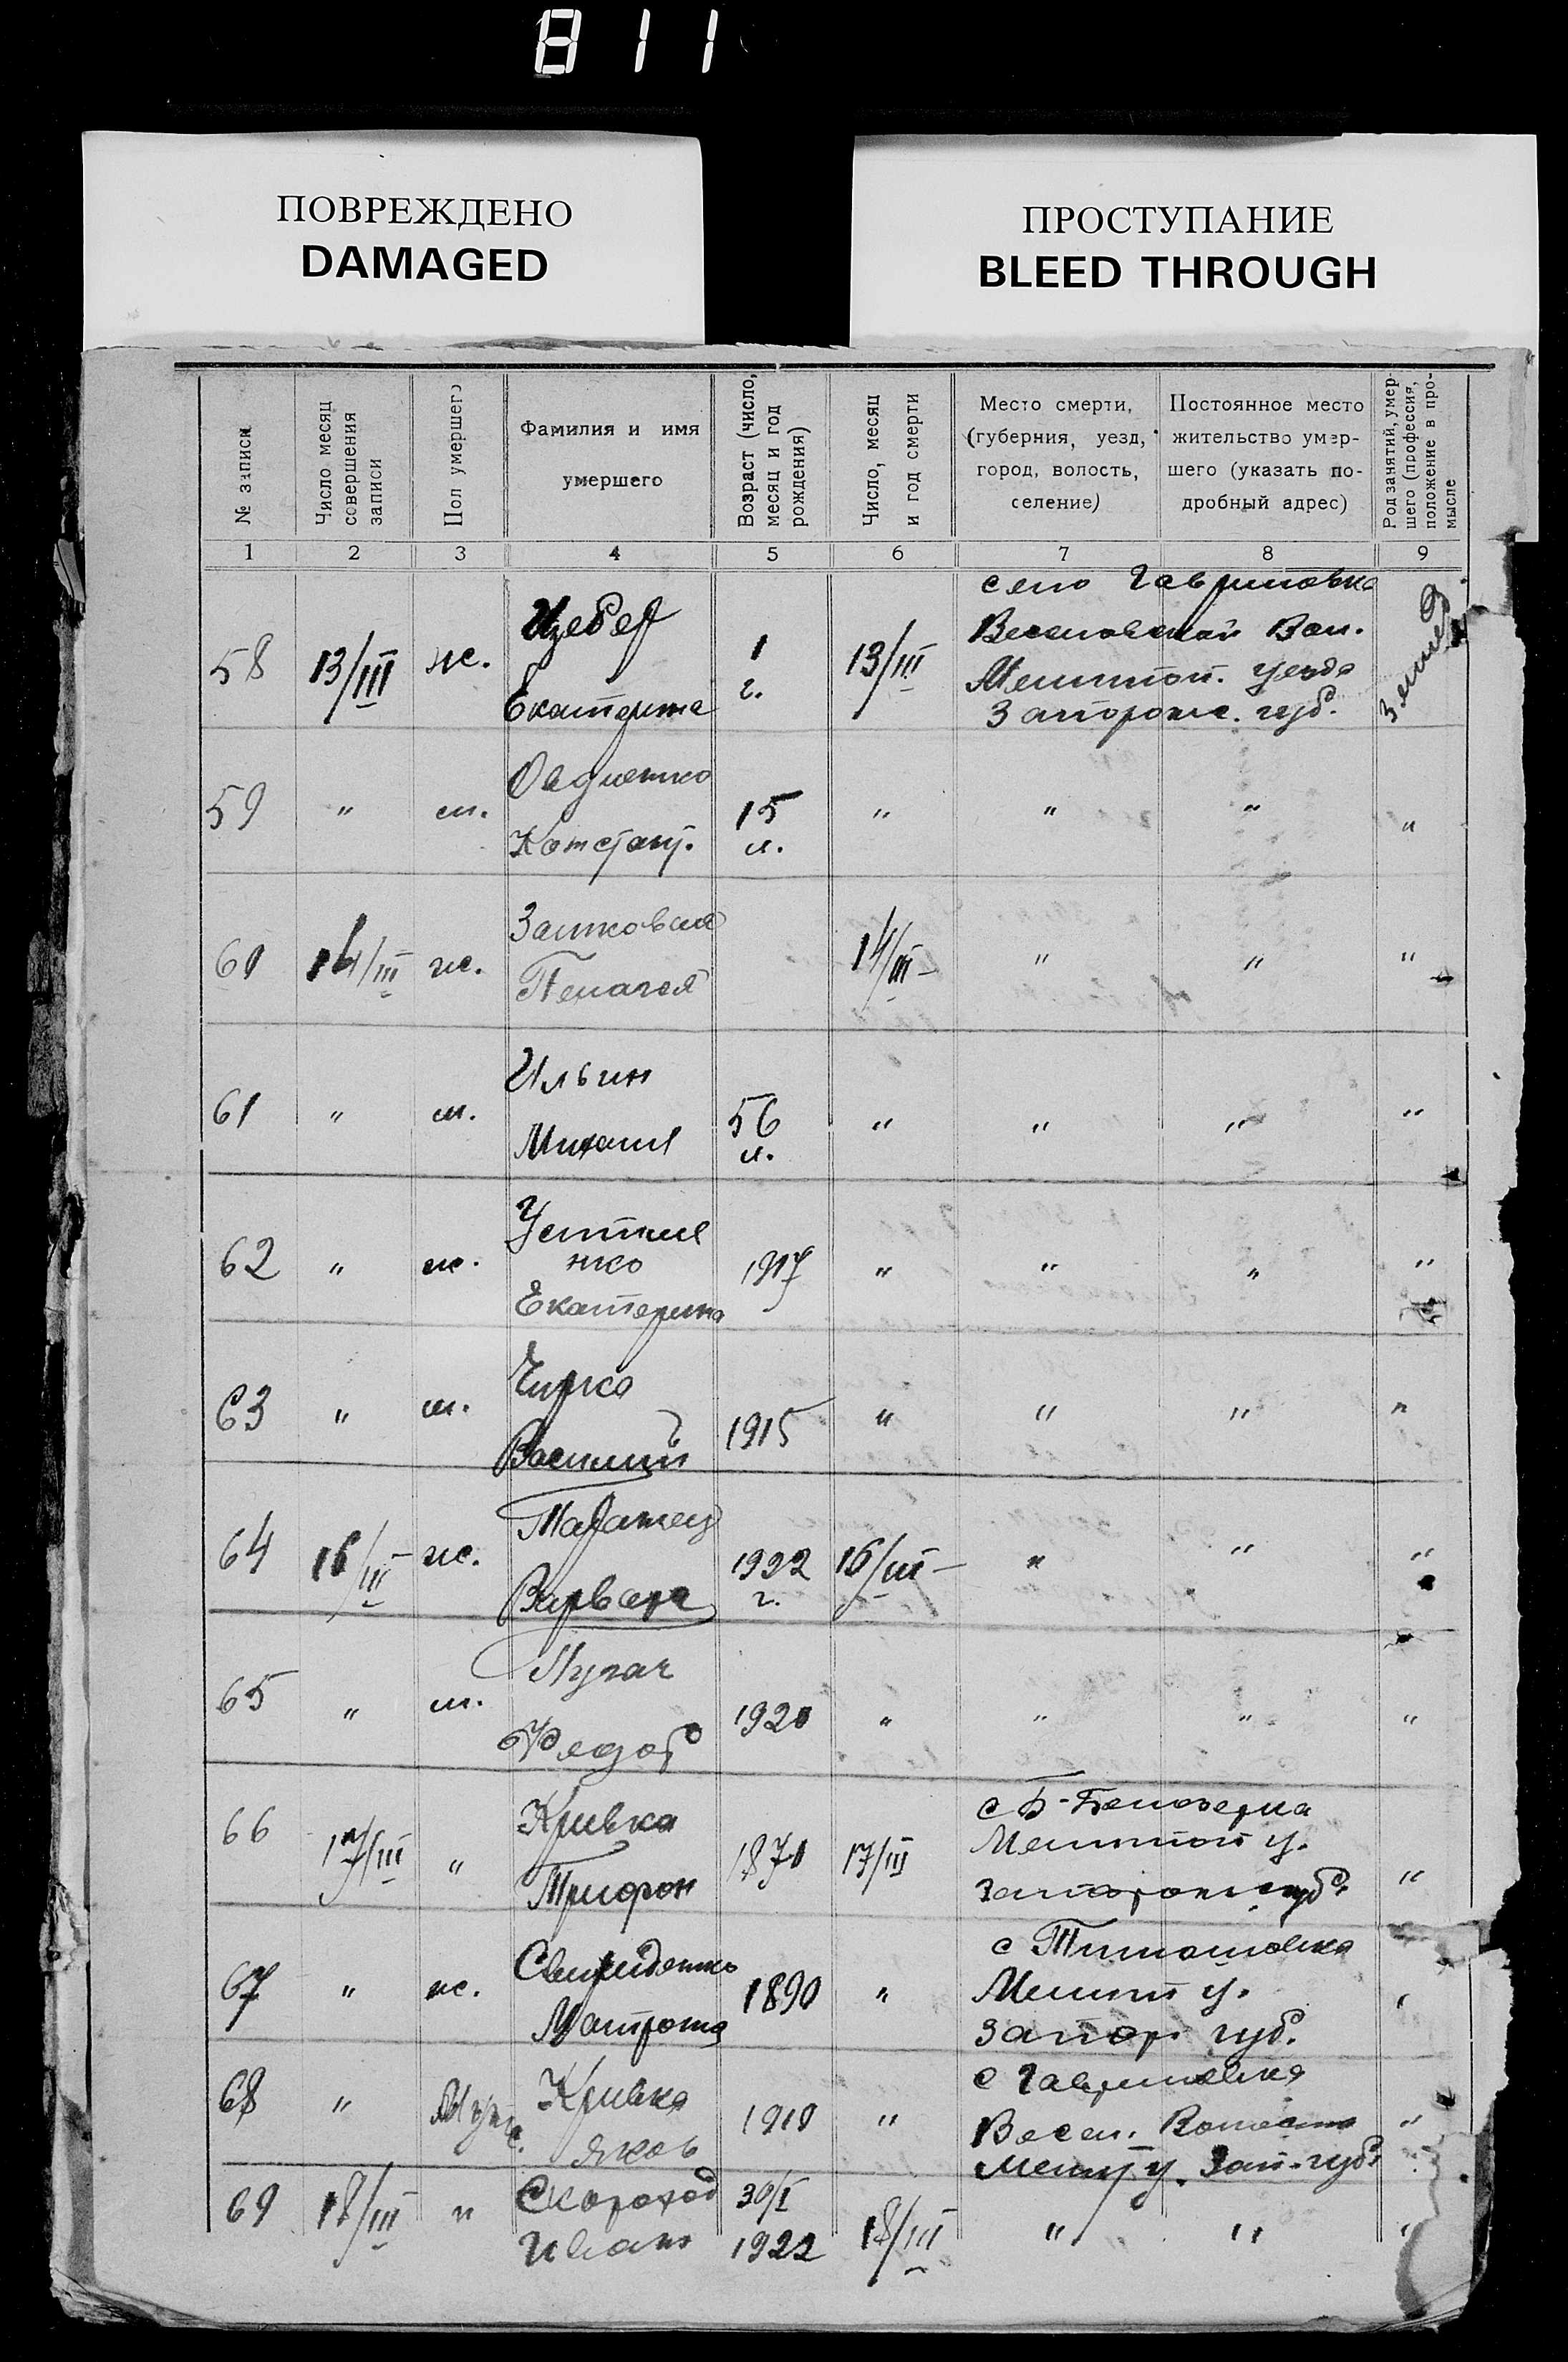 811
ПОВРЕЖДЕНО
DAMAGED
ПРОСТУПАНИЕ
BLEED THROUGH
№ записи
Число месяц совершения записи
Пол умершего
Фамилия и имя умершего
Возраст (число, месяц и год рождения)
Число, месяц и год смерти
Место смерти, (губерния, уезд, город, волость, селение)
Постоянное место жительство умершего (указать подробный адрес)
Род занятий, умершего (профессия, положение в промысле
1 2 3 4 5 6 7 8 9
село Гавриловка
58 13/III ж. Екатерина 1 г. 13/III Веселовской Вол.
Мелитоп. уезда
Запорож. губ.
59 " м. Овдиенко " " " "
Констант. 15 л.
60 14/III ж. 14/III " " "
Пелагея
61 " м. Ильин 56 л. " " " "
Михаил
62 " ж. Устиме
нко 1917 " " " "
Екатерина
63 " м. Чирка 1915 " " " "
Василий
64 16/III ж. Таранец 1922 г. 16/III " " "
Варвара
65 " м. Пугач 1920 " " " "
Федор
66 17/III " Кривка 1870 17/III с Б-Белозерка
Мелитоп у.
Трифон Запорож губ. "
67 " ж. Свириденко 1890 " с Тимошовка
Матрона Мелит у.
Запор. губ.
68 " Муж. Кривка 1910 " с Гавриловка
Яков Весел. Волости "
Мелит у. Зап. губ.
69 18/III " Скороход 30/I
Иван 1922 18/III " " "